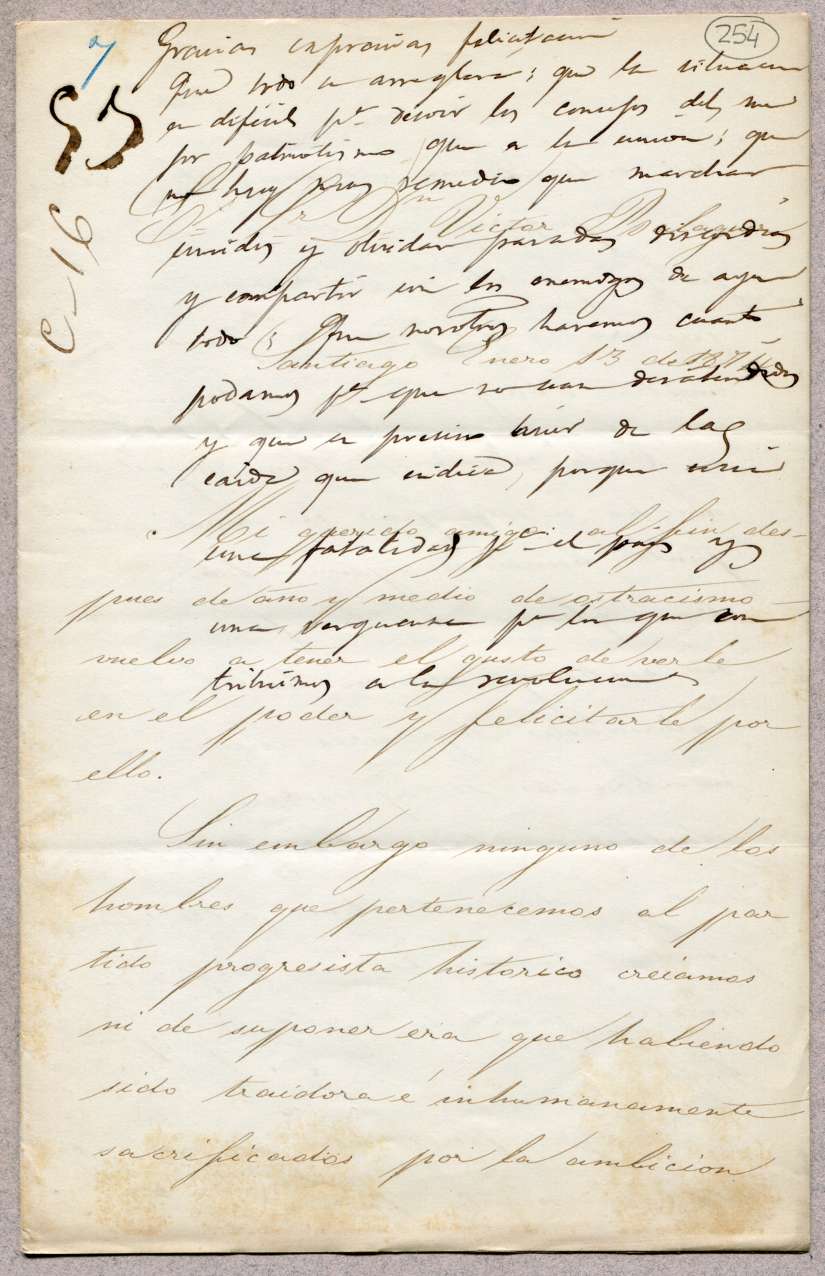 254
7
53
C-16
Gracias expresivas felicitacion
Que todo se arreglará; que la situacion
es difícil pª los consejos del
por patriotismo que a la union; que
no hay mas remedio que marchar
Sr Dn Victor Balaguer
unidos y olvidar pasadas discordias
y compartir con los enemigos de ayer
todo; Que nosotros haremos cuanto
Santiago Enero 13 de 1874
podamos pª que no sean desatendidos
y que es preciso huir de la
caida que indica, porque seria
Mi querido amigo: al fin des-
una fatalidad pª el pais y
pues de año y medio de ostracismo
una verguenza pª los que con
vuelvo a tener el gusto de verle
tribuimos a la revolucion
en el poder y felicitarle por
ello.
Sin embargo ninguno de los
hombres que pertenecemos al par
tido progresista historico creiamos
ni de suponer era que habiendo
sido traidora é inhumanamente
sacrificados por la ambicion